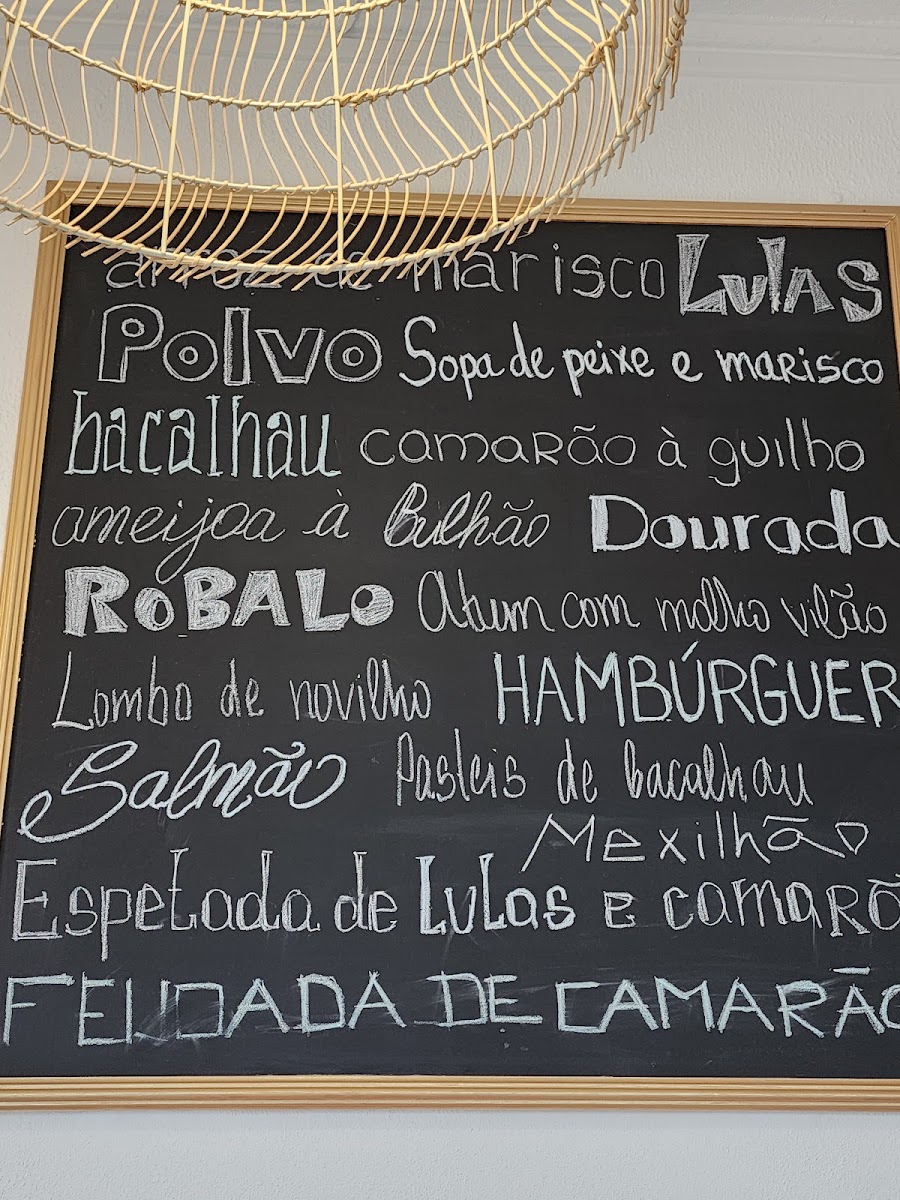 arroz de marisco Lulas
Polvo Sopa de peixe e marisco
bacalhau camarão à guilho
ameijoa à Bulhão Dourada
ROBALO Atum com molho vilão
Lombo de novilho HAMBÚRGUER
Salmão Pasteis de bacalhau
Mexilhão
Espetada de Lulas e camarão
FEIJOADA DE CAMARÃO